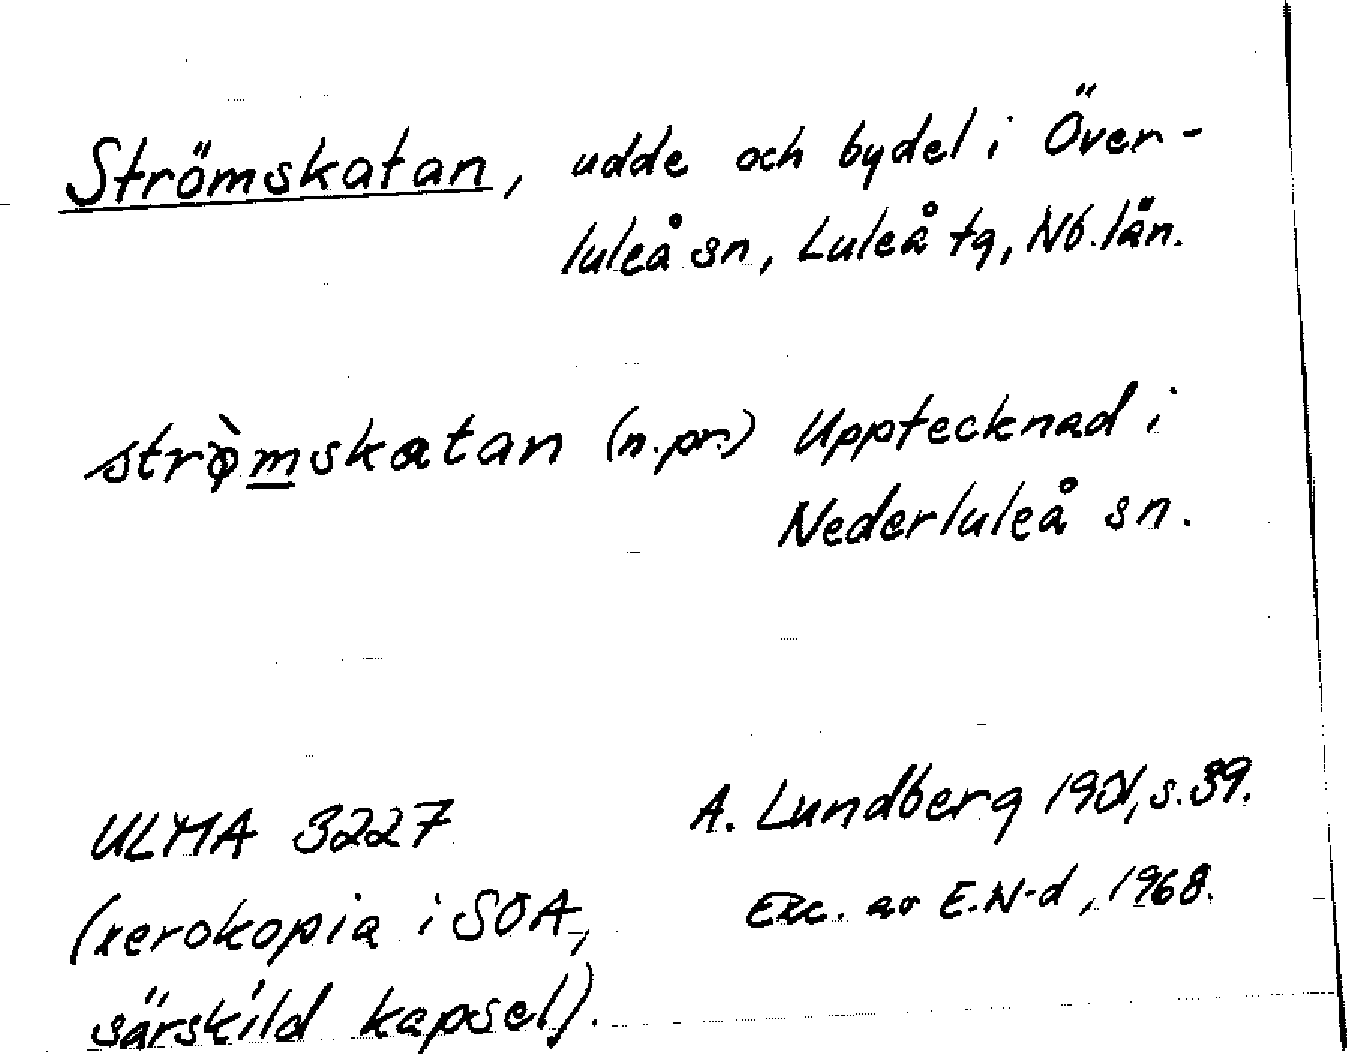 Strömskatan, udde och bydel i Över-
luleå sn, Luleå tg, Nb. län.
strø̀mskatan (n.pr.) Upptecknad i
Nederluleå sn.
ULMA 3227 A. Lundberg s. 39.
(xerokopia i SOA, Exc. av E.N-d, 1968.
särskild kapsel).